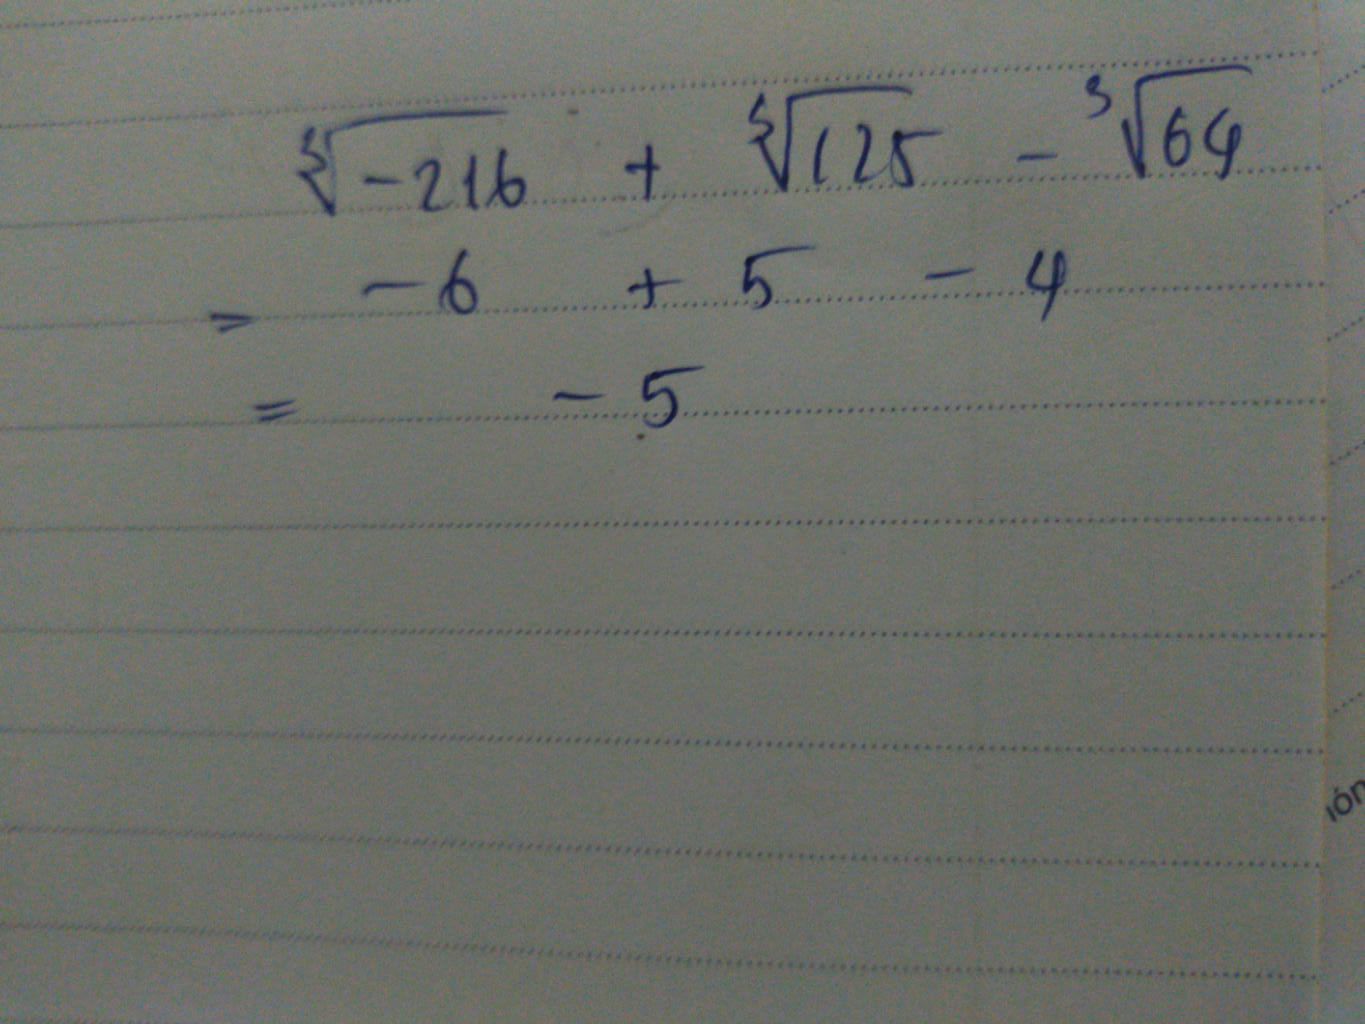 ∛-216 + ∛125 - ∛64
= -6 + 5 - 4
= -5
ión